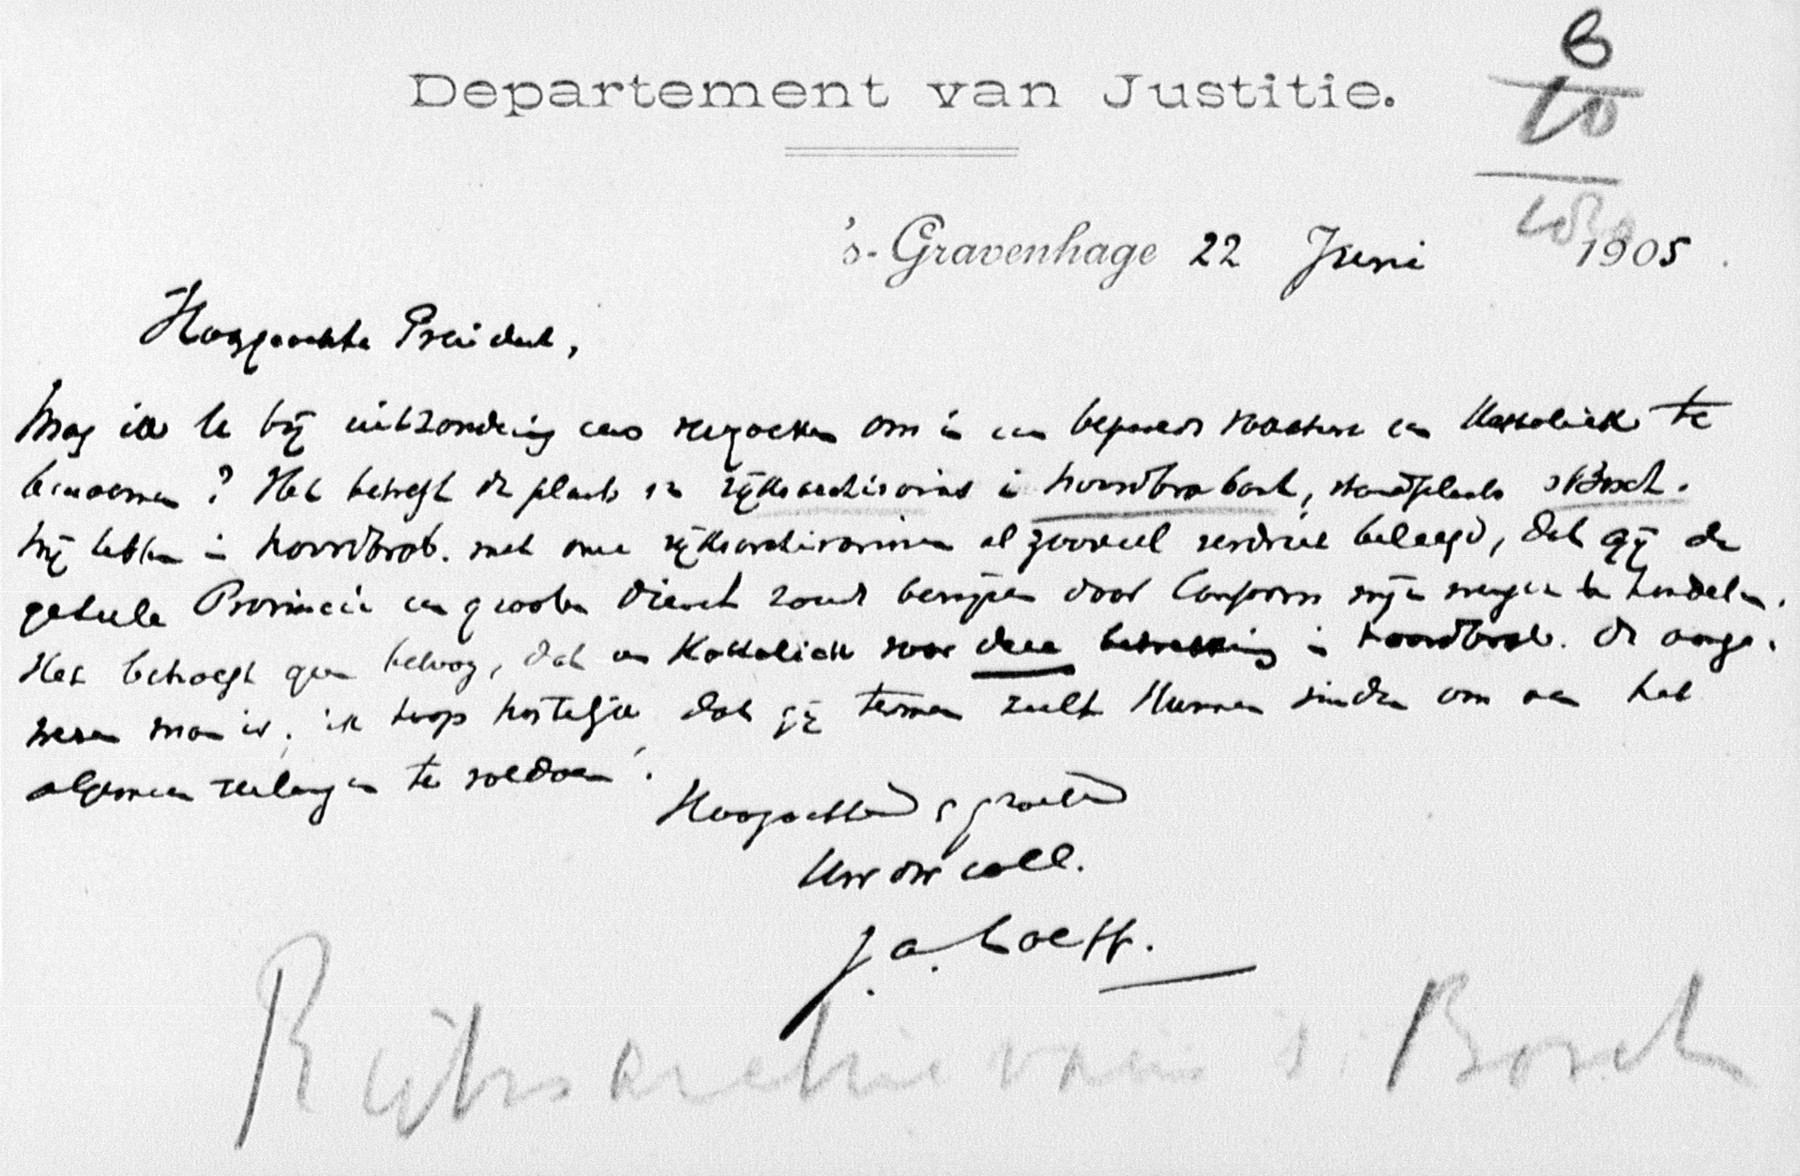 Departement van Justitie.
's-Gravenhage 22 Juni 1905
Hooggeachte President,
Mag ik U bij uitzondering eens verzoeken om in een bepaalde vacature een Katholiek te
benoemen? Het betreft de plaats van rijksarchivaris in Noordbrabant, standplaats 's Bosch.
Wij hebben in Noordbrab. met onze rijksarchivarissen al zooveel verdriet beleefd, dat gij de
geheele Provincie een grooten dienst zoudt bewijzen door conform mijn te handelen.
Het behoeft geen betoog, dat een Katholiek voor deze betrekking in Noordbrab. de aange-
wezen man is; ik hoop hartelijk dat gij termen zult kunnen vinden om aan het
algemeen verlangen te voldoen.
Hoogachtend & groetend
Uw dw coll.
J.A. Loeff.
Rijksarchivaris 's Bosch